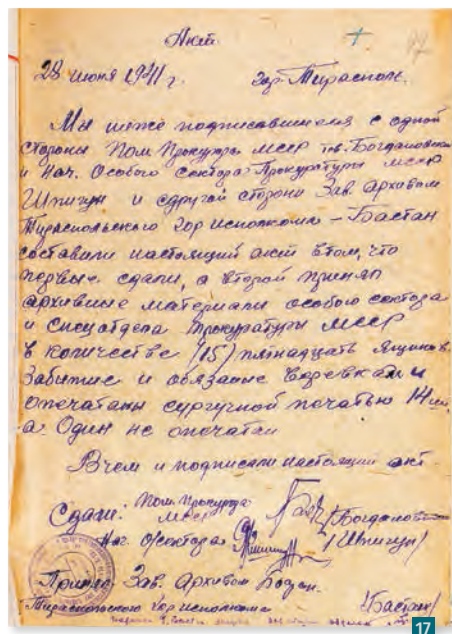 Акт
28 июня 1941 г. гор. Тирасполь.
Мы ниже подписавшиеся с одной
стороны Пом Прокурора МССР тов. Богданович
и нач. Особого сектора Прокуратуры МССР
Шпигун и сдругой стороны Зав. Архивом
Тираспольского гор исполкома – Бастан
составили настоящий акт втом, что
первые сдали, а второй принял
архивные материалы особого сектора
и спецотдела Прокуратуры МССР
в количестве (15) пятнадцать ящиков.
Забитые и обязаные веревками
опечатаны сургучной печатью 14 шт.
а Один не опечатан
Вчем и подписали настоящий акт.
Сдали: Пом. Прокурора
МССР /Богданович/
Нач. о/сектора /Шпигун/
Принял Зав. Архивом
Тираспольского гор исполкома /Бастан/
17